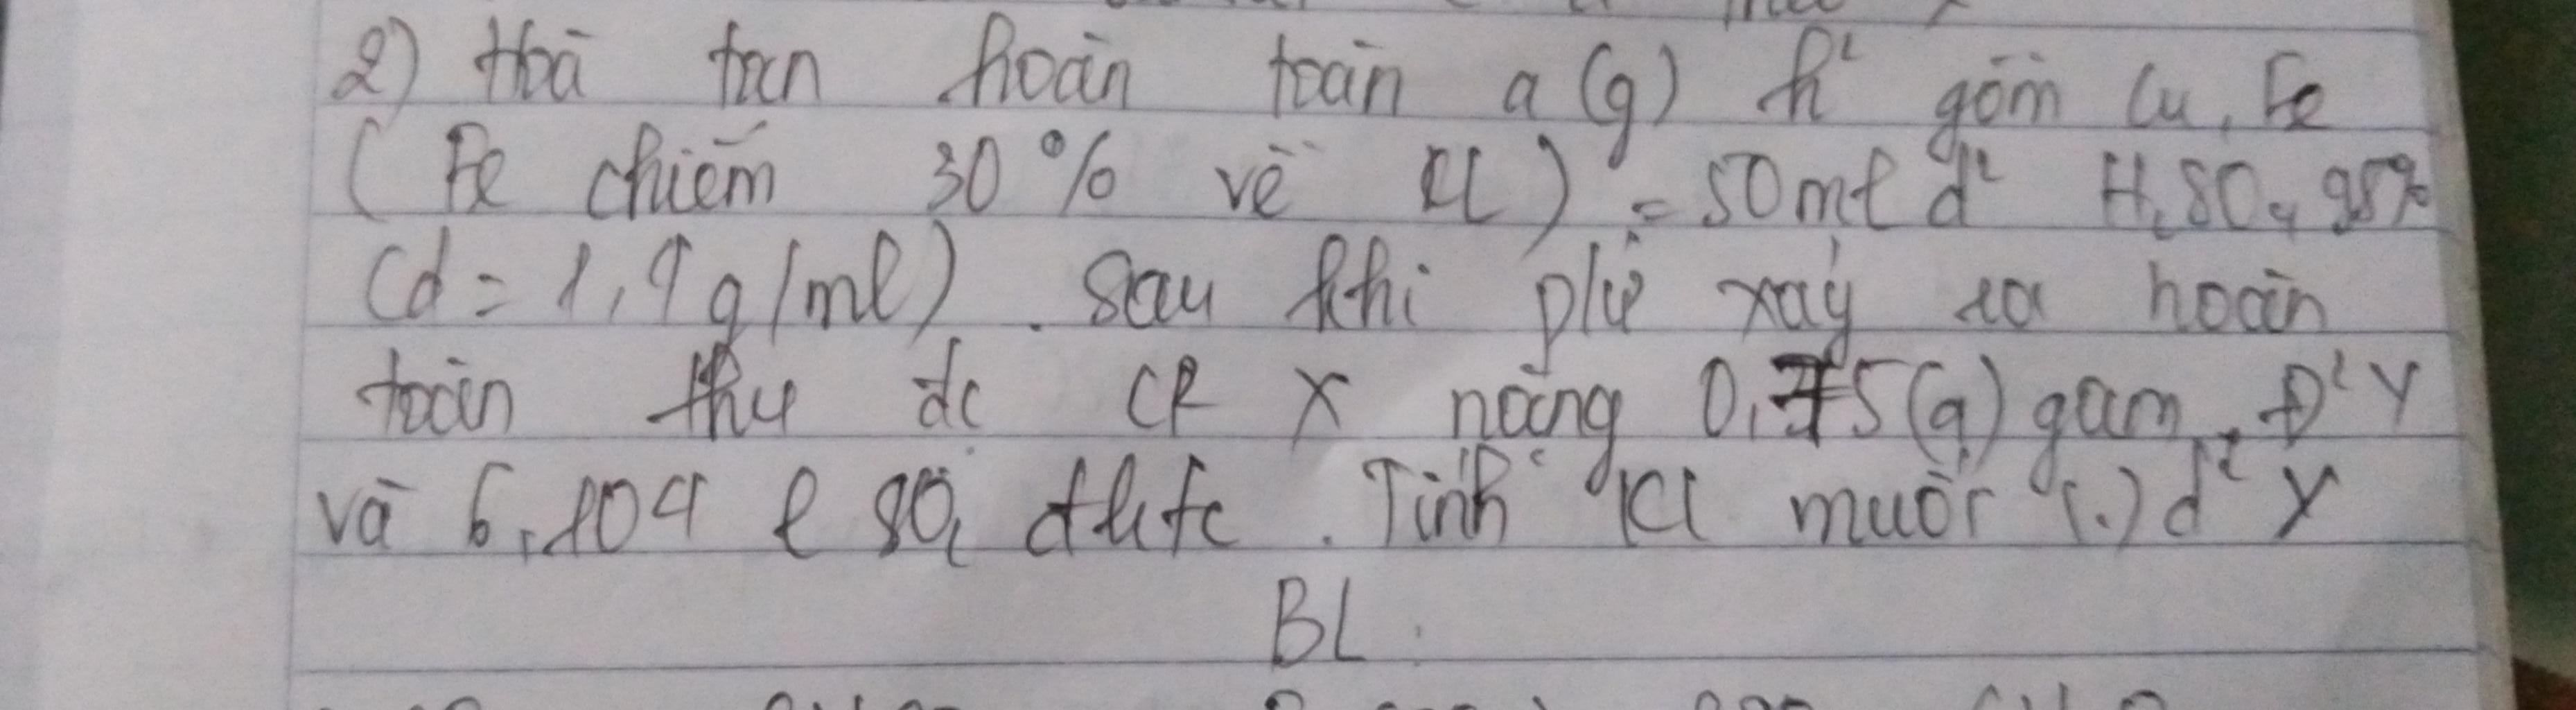 2) Hoà tan hoàn toàn a (g) h² gồm Cu, Fe
( Fe chiếm 30% về KL ) = 50ml d² H₂SO₄ 98%
(d = 1,9 g/ml) . Sau khi p/ứ xảy ra hoàn
toàn thu đc CR X nặng 0,75(a) gam. D² Y
và 6,104 l SO₂ đktc . Tính KL muối (.) d² Y
BL :